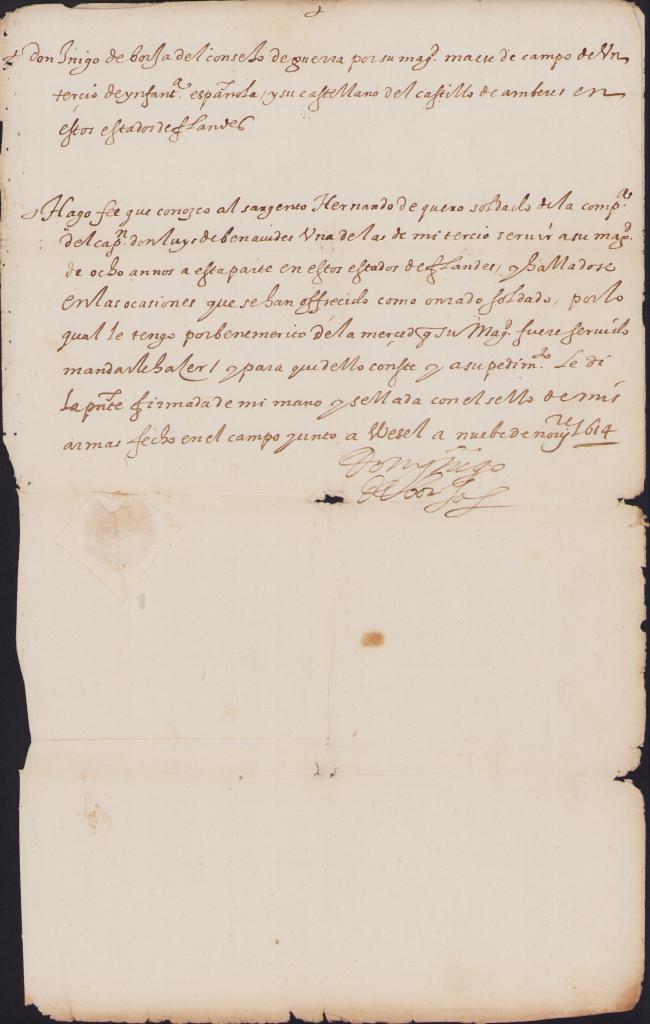 don Inigo de borja del consejo de guerra por su magd. maese de campo de Un
tercio de ynfanta. española, y su castellano del castillo de amberes en
estos estados de flandes
Hago fee que conozco al sargento Hernando de quero soldado de la compa.
del capn. don luys de benauides Una de las de mi tercio seruir a su magd.
de ocho annos a esta parte en estos estados de flandes, y halladose
en las ocasiones que se han offrecido como onrado soldado, por lo
qual le tengo por benemerito de la merced q su Magd. fuere seruido
mandarle hazer / y para que dello conste y a su pedimto. Le di
la pnte firmada de mi mano y sellada con el sello de mis
armas fecho en el campo junto a Wesel a nuebe de novre 1614
Don ynigo
de borja